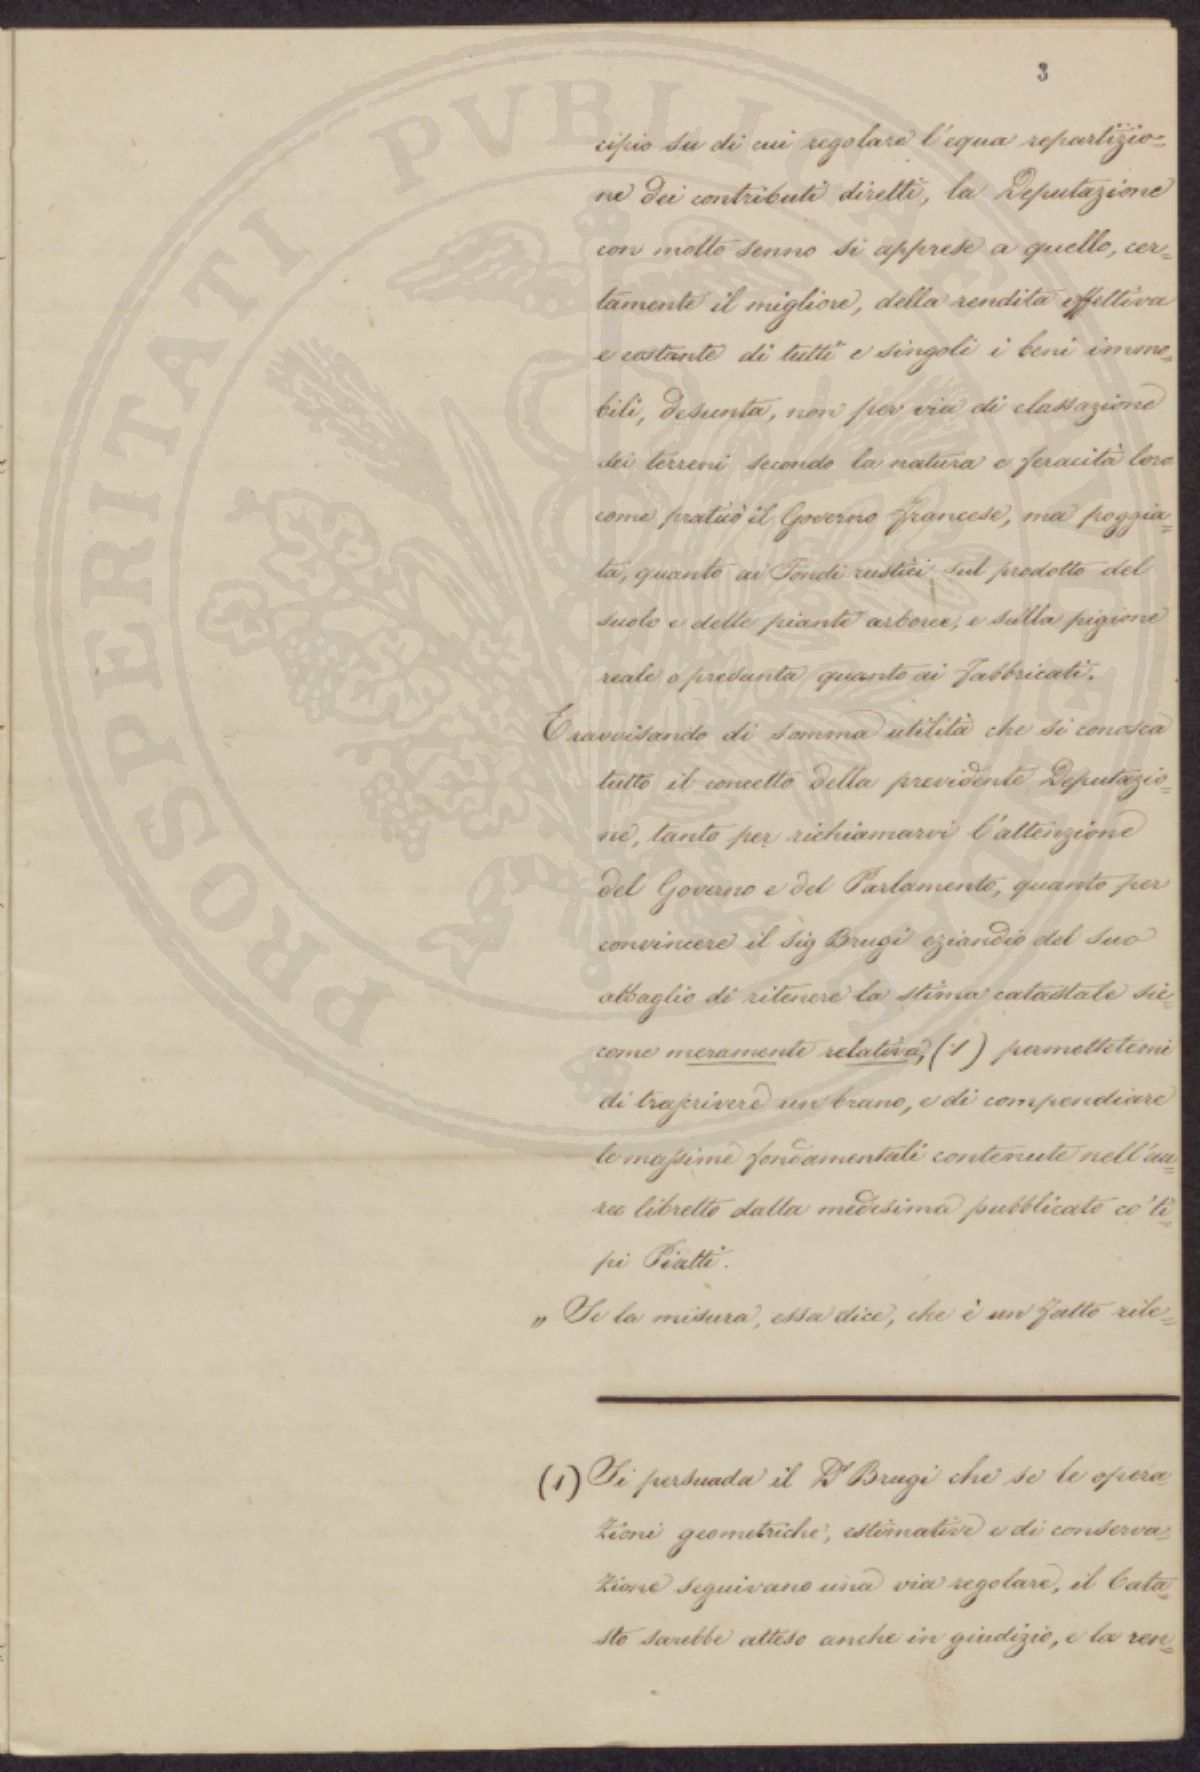 3
cipio su di cui regolare l'equa repartizio=
ne dei contributi diretti, la Deputazione
con molto senno si apprese a quello, cer=
tamente il migliore, della rendita effettiva
e costante di tutti e singoli i beni immo=
bili, desunta, non per via di classazione
dei terreni secondo la natura e feracità loro
come praticò il Governo francese, ma poggia=
ta, quanto ai Fondi rustici sul prodotto del
suolo e delle piante arboree, e sulla pigione
reale o presunta quanto ai fabbricati.
E ravvisando di somma utilità che si conosca
tutto il concetto della previdente Deputazio=
ne, tanto per richiamarvi l'attenzione
del Governo e del Parlamento, quanto per
convincere il Sig Brugi eziandio del suo
abbaglio di ritenere la stima catastale sic=
come meramente relativa, (1) permettetemi
di trascrivere un brano, e di compendiare
le massime fondamentali contenute nell'au=
reo libretto dalla medesima pubblicato co' ti=
pi Piatti.
„ Se la misura, essa dice, che è un fatto rile=
(1) Si persuada il Dr Brugi che se le opera=
zioni geometriche, estimative e di conserva=
zione seguivano una via regolare, il Cata=
sto sarebbe atteso anche in giudizio, e la ren=
PROSPERITATI PVBLICAE